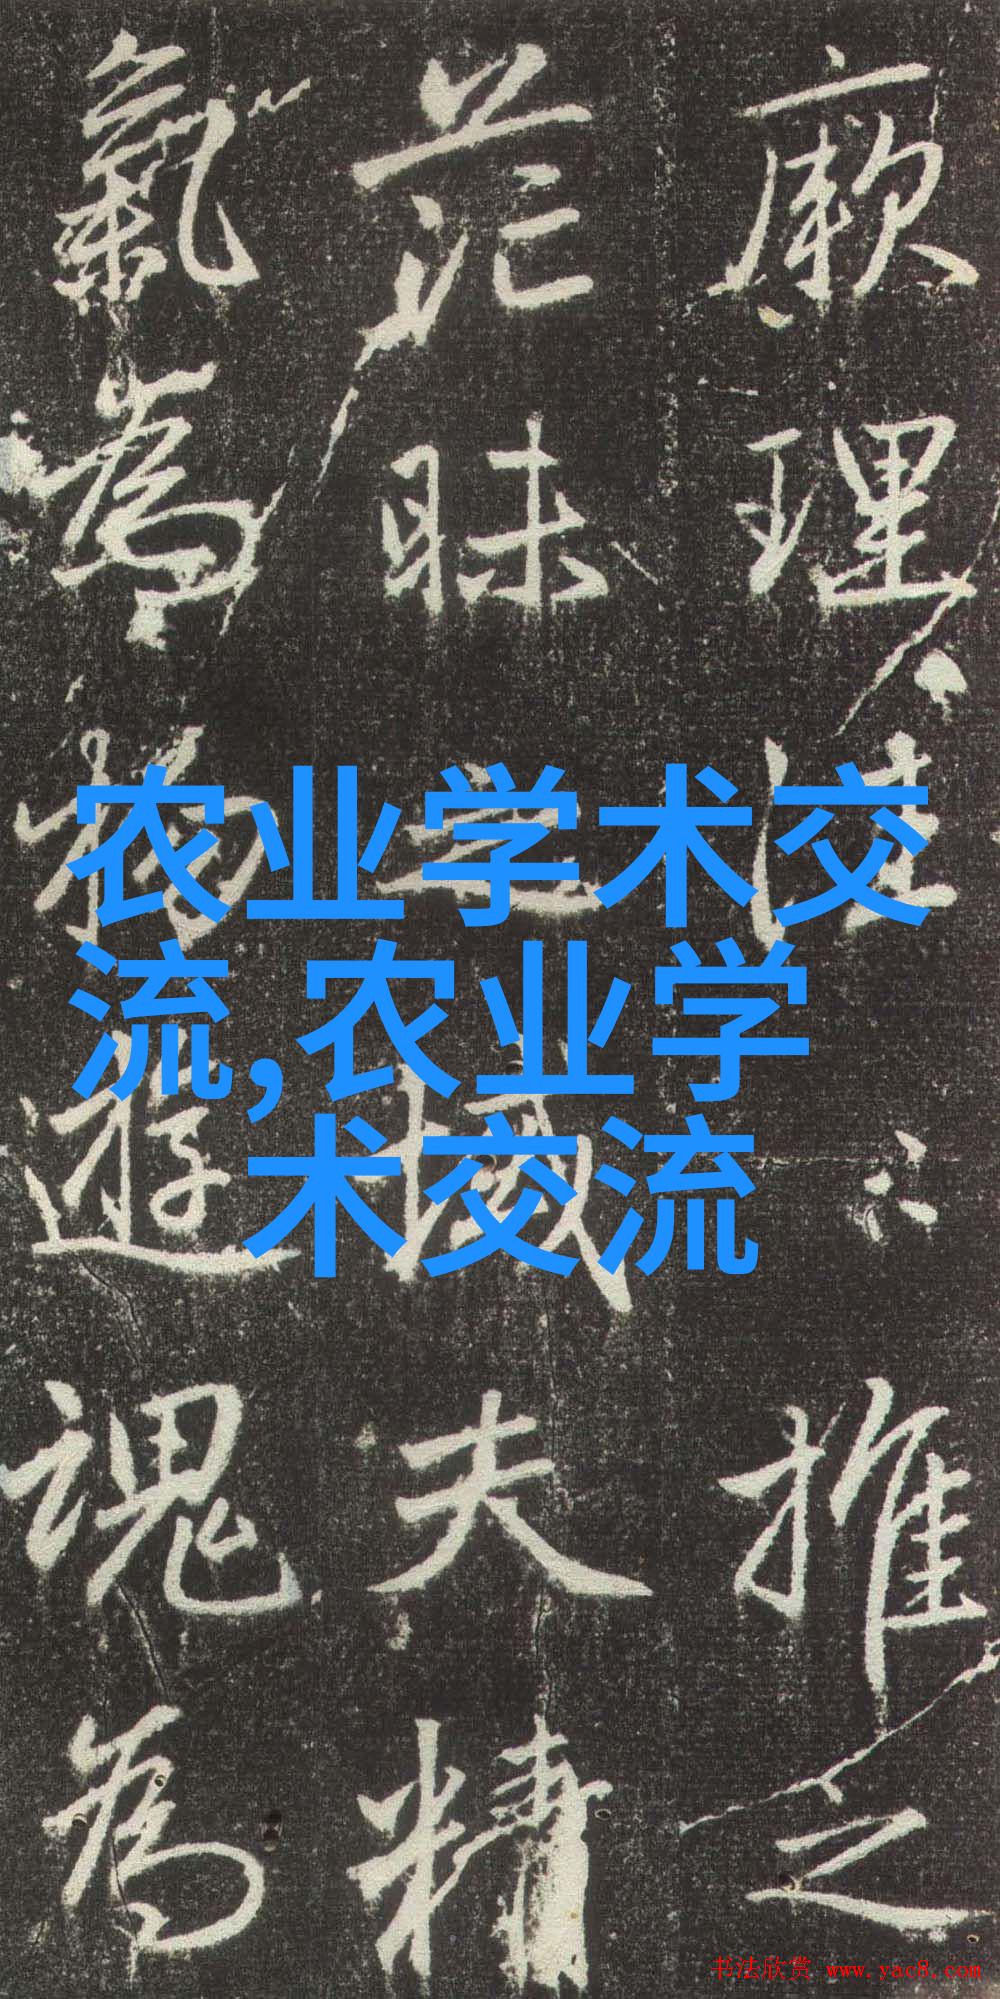 厥理推之
茫昧之域夫精
氣為物遊魂為
农业学术交
流,农业学
术交流
书法欣赏 www.yac8.com